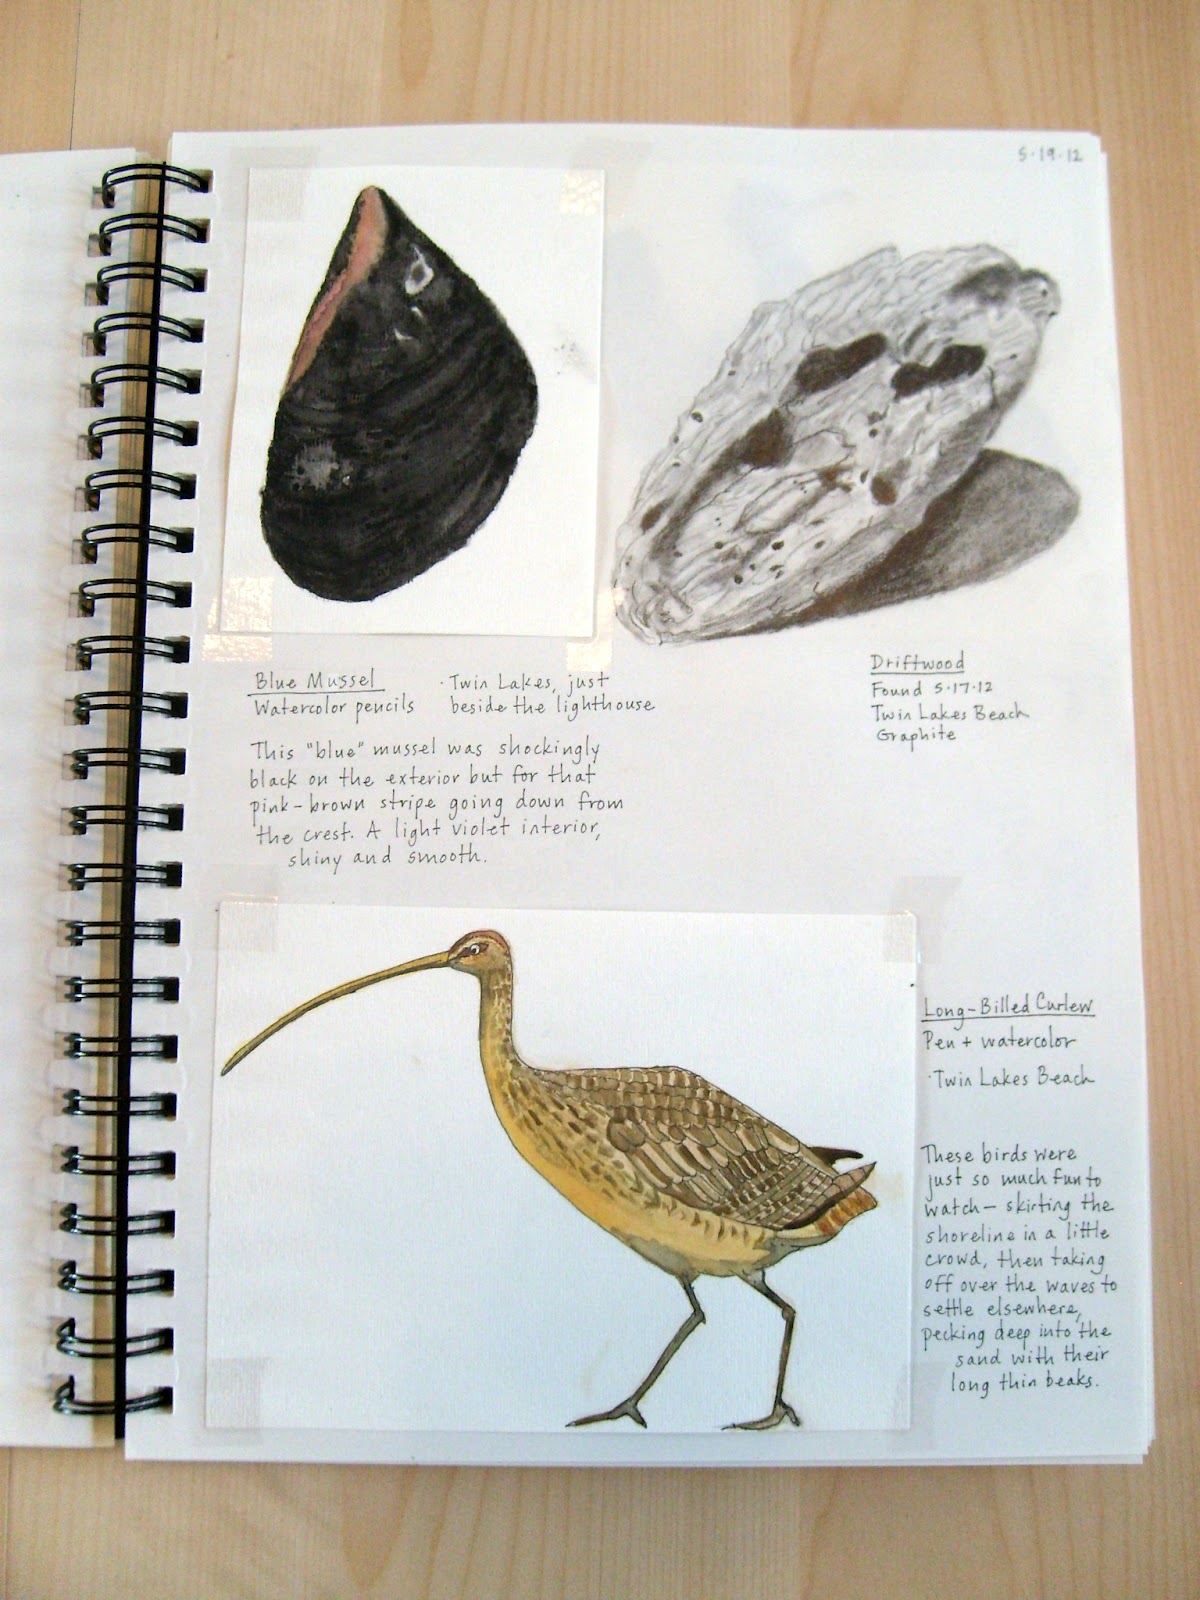 5-19-12
Blue Mussel
Watercolor pencils
· Twin Lakes, just
beside the lighthouse
This "blue" mussel was shockingly
black on the exterior but for that
pink-brown stripe going down from
the crest. A light violet interior,
shiny and smooth.
Driftwood
Found 5-17-12
Twin Lakes Beach
Graphite
Long-Billed Curlew
Pen + watercolor
· Twin Lakes Beach
These birds were
just so much fun to
watch — skirting the
shoreline in a little
crowd, then taking
off over the waves to
settle elsewhere,
pecking deep into the
sand with their
long thin beaks.